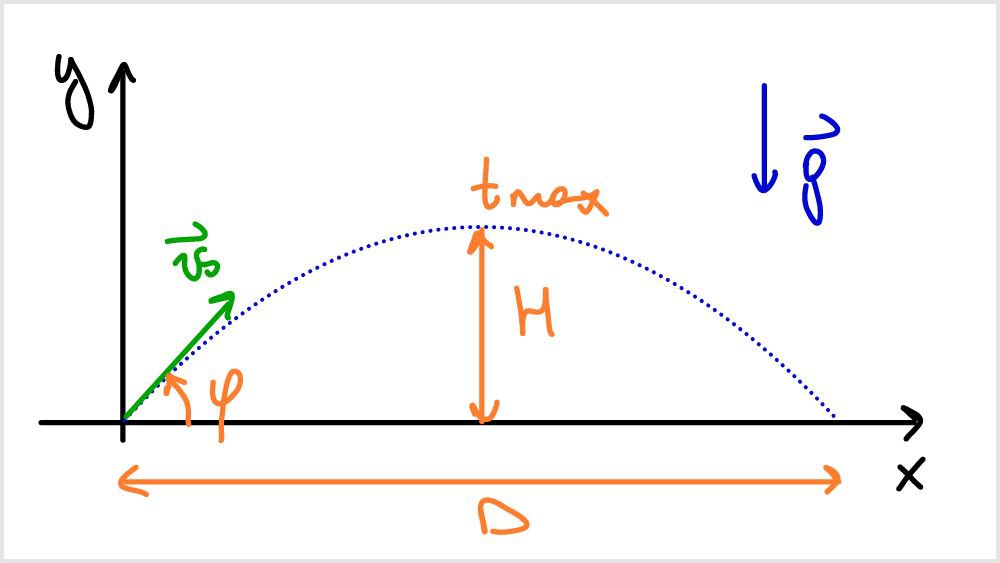 y
g⃗
t max
v⃗₀
H
φ
x
D